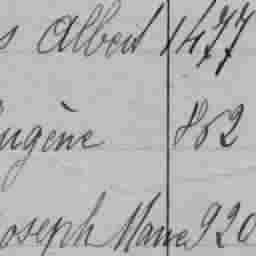 s Albert 1477
Eugène 802
Joseph Marie 920